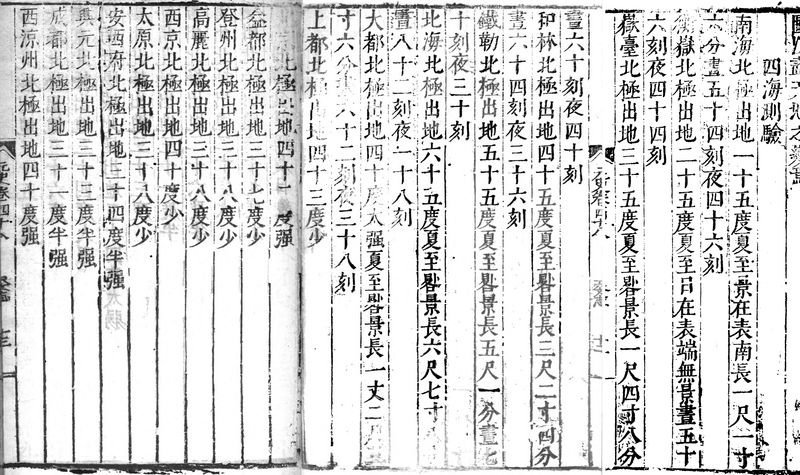 四海測驗
南海北極出地一十五度夏至景在表南長一尺一寸
六分晝五十四刻夜四十六刻
衡嶽北極出地二十五度夏至日在表端無景晝五十
六刻夜四十四刻
嶽臺北極出地三十五度夏至晷景長一尺四寸八分
晝六十刻夜四十刻
和林北極出地四十五度夏至晷景長三尺二寸四分
晝六十四刻夜三十六刻
鐵勒北極出地五十五度夏至晷景長五尺一分晝七
十刻夜三十刻
北海北極出地六十五度夏至晷景長六尺七寸
晝八十二刻夜一十八刻
大都北極出地四十度太强夏至晷景長一丈二尺
寸六分晝六十二刻夜三十八刻
上都北極出地四十三度少
北極出地四十二度强
益都北極出地三十七度少
登州北極出地三十八度少
高麗北極出地三十八度少
西京北極出地四十度少
太原北極出地三十八度少
安西府北極出地三十四度半强
興元北極出地三十三度半强
成都北極出地三十一度半强
西涼州北極出地四十度强